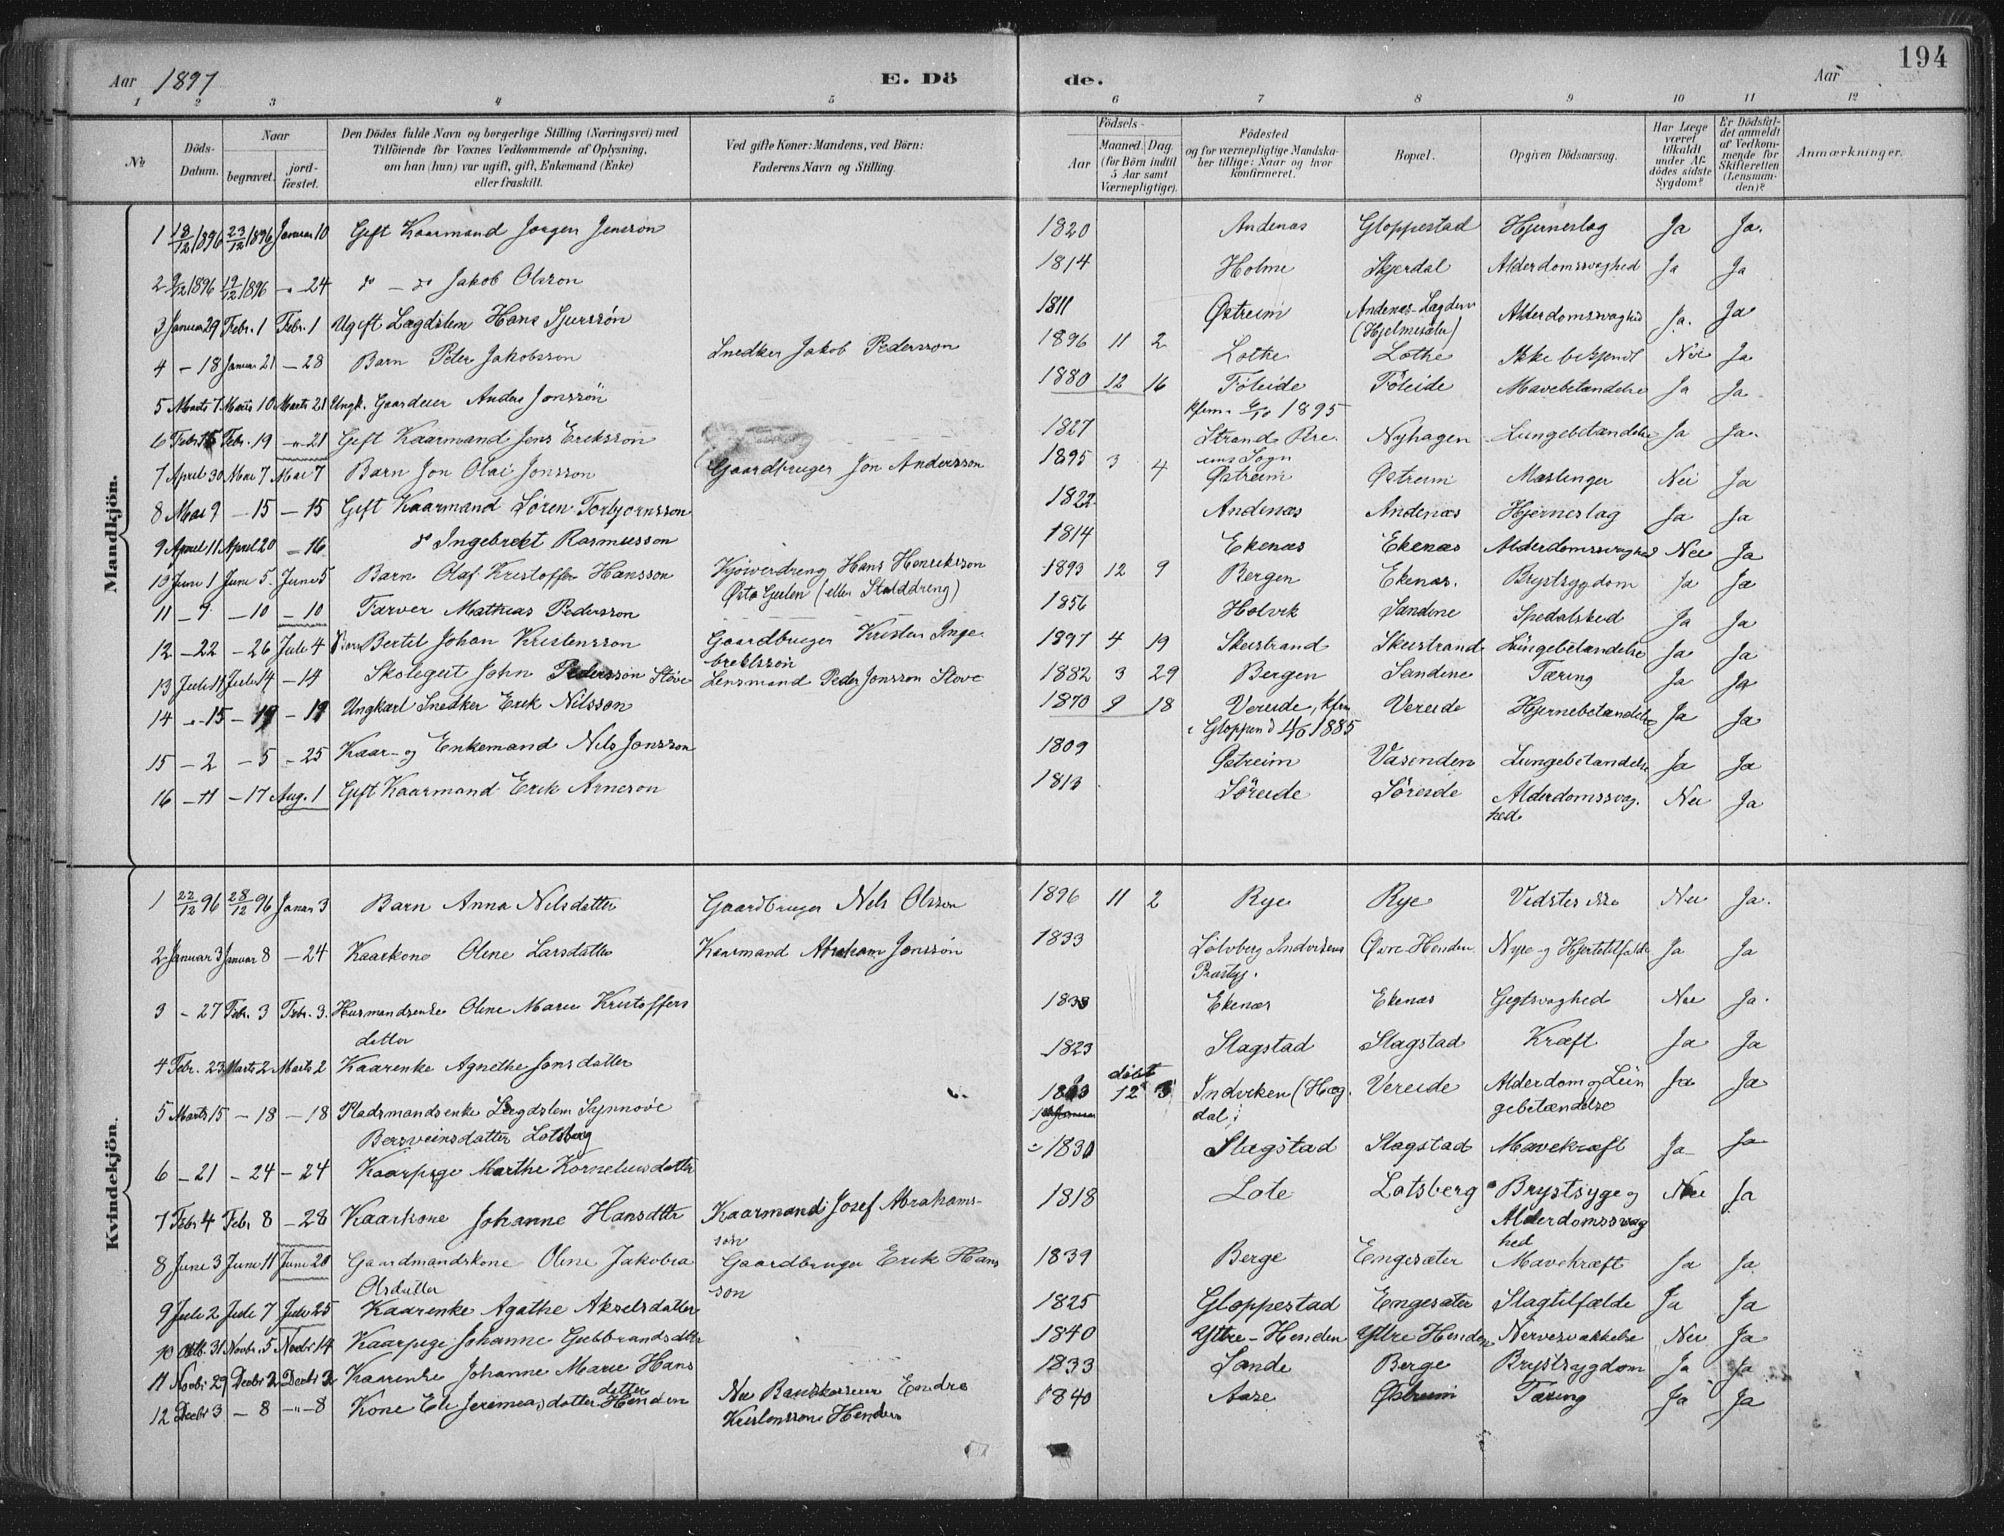 194
Aar 1897 E. Dö de. Aar
1 2 3 4 5 6 7 8 9 10 11 12
№
Döds-Datum.
Naar
begravet.
jord-fæstet.
Den Dödes fulde Navn og borgerlige Stilling (Næringsvei) med
Tilföiende for Voxnes Vedkommende af Oplysning,
om han (hun) var ugift, gift, Enkemand (Enke)
eller fraskilt.
Ved gifte Koner: Mandens, ved Börn:
Faderens Navn og Stilling.
Födsels-
Aar
Maaned. Dag.
(for Börn indtil
5 Aar samt
Værnepligtige).
Födested
og for værnepligtige Mandska-
ber tillige: Naar og hvor
konfirmeret.
Bopæl.
Opgiven Dödsaarsag.
Har Læge
været
tilkaldt
under Af-
dödes sidste
Sygdom?
Er Dödsfal-
det anmeldt
af Vedkom-
mende for
Skifteretten
(Lensman-
den)?
Anmærkninger.
Mandkjön.
1 18/12 1896 23/12 1896 Januar 10 Gift Kaarmand Jørgen Jensson 1820 Andenæs Gloppestad Hjerneslag Ja Ja.
2 9/12 1896 19/12 1896 -"- 24 do - do Jakob Olsson 1814 Holme Skjerdal Alderdomssvaghed Ja Ja
3 Januar 29 Febr. 1 Febr. 1 Ugift Lægdslem Hans Sjurssön 1811 Østreim Andenæs-Lægden Alderdomssvaghed Ja. Ja
(Hjelmesæter)
4 - 18 Januar 21 - 28 Barn Peter Jakobsson Snedker Jakob Pedersson 1896 11 2 Lothe Lothe Ikke bekjendt Nei Ja
5 Marts 7 Marts 10 Marts 21 Ungk. Gaardeier Anders Jonssön 1880 12 16 Föleide Föleide Mavebetændelse Ja Ja.
kfrm. 6/10 1895
6 Febr. 15 Febr. 19 -"- 21 Gift Kaarmand Jens Eriksson 1827 Strand Bre- Nyhagen Lungebetændelse Ja Ja.
ms Sogn
7 April 30 Mai 7 Mai 7 Barn Jon Olai Jonsson Gaardbruger Jon Andersson 1895 3 4 Østreim Østreim Mæslinger Nei Ja
8 Mai 9 - 15 - 15 Gift Kaarmand Sören Torbjørnsson 1822 Andenæs Andenæs Hjerneslag Ja Ja
9 April 11 April 20 - 16 do Ingebrekt Rasmusson 1814 Ekenæs Ekenæs Alderdomssvaghed Nei Ja
10 Juni 1 Juni 5. Juni 5 Barn Olaf Kristoffer Hansson Kjöiverdreng Hans Henriksson 1893 12 9 Bergen Ekenæs. Brystsygdom Ja Ja
(eller Stalddreng)
11 - 9 - 10 - 10 Farver Mathias Pedersson 1856 Holvik Sandene Spedalsked Ja Ja
12 - 22 - 26 Juli 4 Barn Bertel Johan Kristensson Gaardbruger Kristen Inge 1897 4 19 Skeistrand Skeistrand Lungebetændelse Ja Ja
brektssön
13 Juli 11 Juli 14 - 14 Skolegut John Pedersson Støve Lensmand Peder Jonsson Støve 1882 3 29 Bergen Sandene Tæring Ja Ja
14 -"- 15 - 19 - 19 Ungkarl Snedker Erik Nilsson 1870 9 18 Vereide, kfrm Vereide Hjernebetændelse Ja Ja
i Gloppen d 1885
15 - 2 - 5 - 25 Kaar- og Enkemand Nils Jonsson 1809 Østreim Vasenden Lungebetændelse Ja Ja
16 - 11 - 17 Aug. 1 Gift Kaarmand Erik Arneson 1813 Söreide Söreide Alderdomssvag- Nei Ja
hed
Kvindekjön.
1 22/12 96 28/12 96 Januar 3 Barn Anna Nilsdatter Gaardbruger Nils Olsson 1896 11 2 Rye Rye Nei Ja.
2 Januar 3 Januar 8 - 24 Kaarkone Oline Larsdatter Kaarmand Abraham Jonssön 1833 Indvikens Øvre-Henden Nyre- og Hjertetilfælde Ja Ja
Præstgj.
3 - 27 Febr. 3 Febr. 3. Husmandsenke Oline Marie Kristoffers 1838 Ekenæs Ekenæs Gigtsvaghed Nei Ja.
datter
4 Febr. 23 Marts 2 Marts 2 Kaarenke Agnethe Jonsdatter 1823 Slagstad Slagstad Kræft Ja Ja
5 Marts 15 - 18 - 18 Pladsmandsenke Lægdslem Synnöve döbt 12 Indviken (Hæg- Vereide Alderdom og Lun Ja Ja
dal) gebetændelse
Bersveinsdatter Lotsberg
6 - 21 - 24 - 24 Kaarpige Marthe Korneliusdatter 1830 Slagstad Slagstad Mavekræft Ja Ja
7 Febr 4 Febr 8 - 28 Kaarkone Johanne Hansdtr Kaarmand Josef Abrahams- 1818 Lote Lotsberg Brystsyge og Nei Ja
son Alderdomssvag
hed
8 Juni 3 Juni 11 Juni 20 Gaardmandskone Oline Jakobea Gaardbruger Erik Hans 1839 Berge Engesæter Mavekræft Ja Ja
Olsdatter son
9 Juli 2 Juli 7 Juli 25 Kaarenke Agathe Akselsdatter 1825 Gloppestad Engesæter Slagtilfælde Ja Ja
10 Oktb. 31 Novbr. 5 Novbr 14 Kaarpige Johanne Gubbrandsdatter 1840 Yttre-Henden Yttre Henden Nervesvækkelse Nei Ja
11 Novbr 29 Decbr 2 Decbr 2 Kaarenke Johanne Marie Hans 1833 Sande Berge Brystsygdom Ja Ja
datter
12 Decbr 3 - 8 -"- 8 Kone Eli Jeremeasdatter Henden Endre 1840 Aase Østreim Tæring Ja Ja
Kristensson Henden